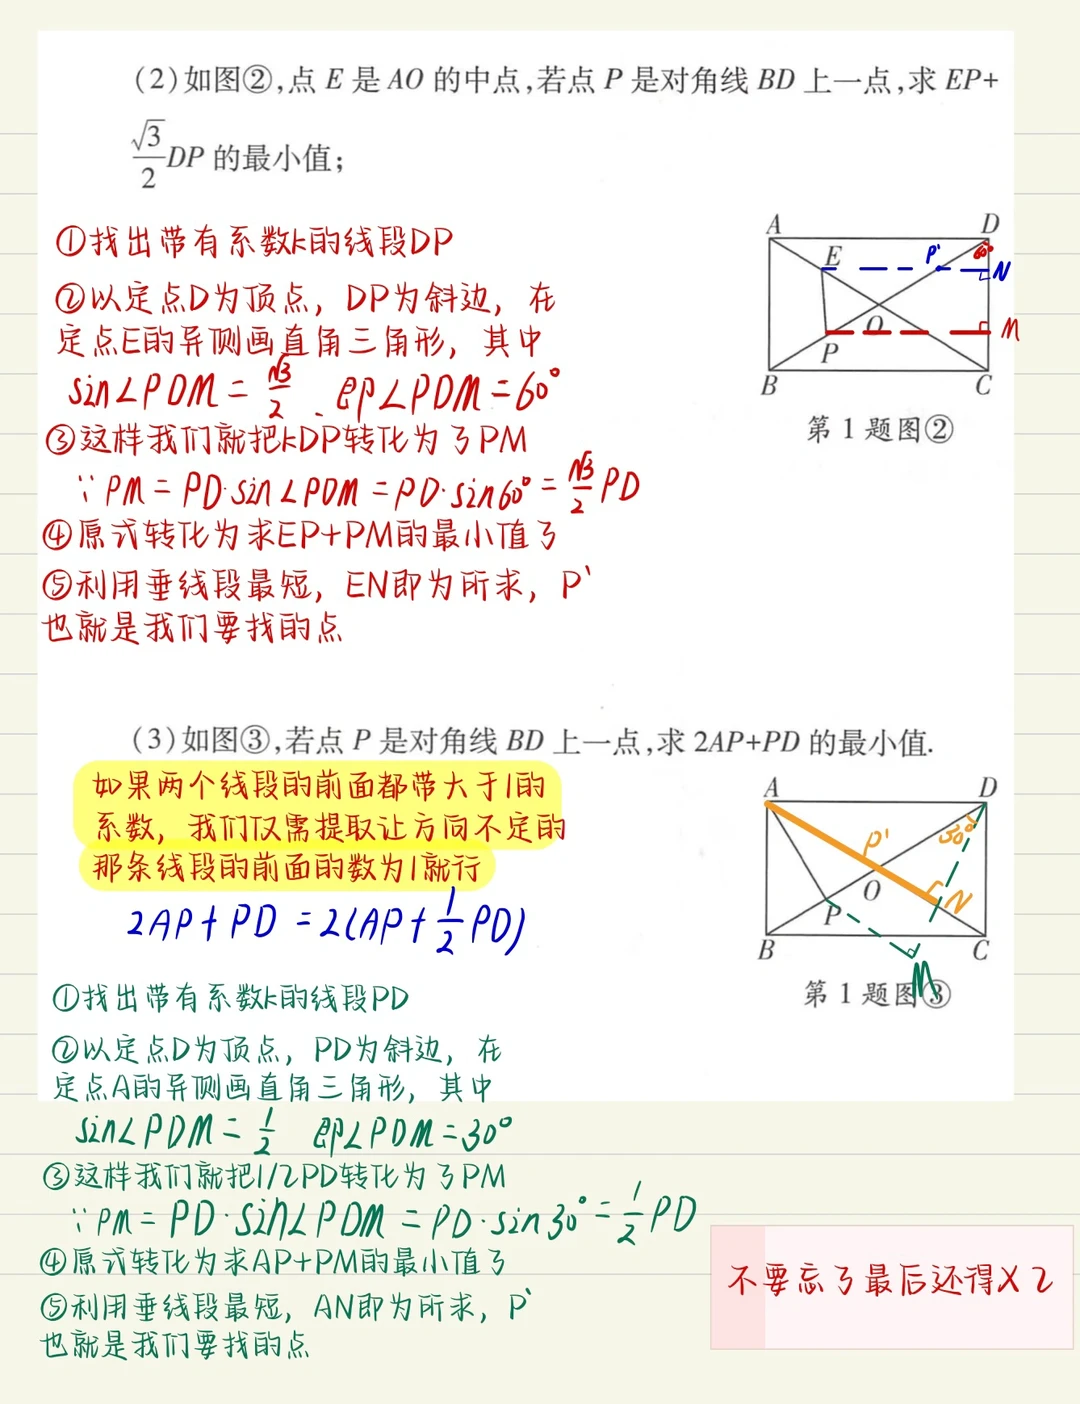 (2)如图②,点 E 是 AO 的中点,若点 P 是对角线 BD 上一点,求 EP+
√3/2 DP 的最小值;
①找出带有系数k的线段DP
②以定点D为顶点，DP为斜边，在
定点E的异侧画直角三角形，其中
sin∠PDM = √3/2 、即∠PDM = 60°
③这样我们就把kDP转化为了PM
∵ PM = PD·sin∠PDM = PD·sin60° = √3/2 PD
④原式转化为求EP+PM的最小值了
⑤利用垂线段最短，EN即为所求，P`
也就是我们要找的点
A D
E P' 60° N
O M
P
B C
第 1 题图②
(3)如图③,若点 P 是对角线 BD 上一点,求 2AP+PD 的最小值.
如果两个线段的前面都带大于1的
系数，我们仅需提取让方向不定的
那条线段的前面的数为1就行
2AP + PD = 2(AP + 1/2 PD)
A D
P' 30°
O N
P
B C
M
第 1 题图③
①找出带有系数k的线段PD
②以定点D为顶点，PD为斜边，在
定点A的异侧画直角三角形，其中
sin∠PDM = 1/2 即∠PDM = 30°
③这样我们就把1/2PD转化为了PM
∵ PM = PD·sin∠PDM = PD·sin30° = 1/2 PD
④原式转化为求AP+PM的最小值了
⑤利用垂线段最短，AN即为所求，P`
也就是我们要找的点
不要忘了最后还得X2